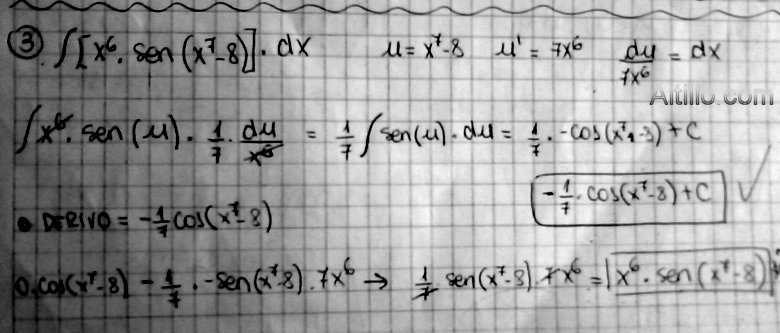 ③ ∫[x⁶. sen (x⁷-8)]. dx u = x⁷-8 u' = 7x⁶ du/7x⁶ = dx
Altillo.com
∫x⁶. sen (u). 1/7. du/x⁶ = 1/7 ∫ sen(u). du = 1/7 . -cos(x⁷-8) + C
-1/7. cos(x⁷-8)+C ✓
• DERIVO = -1/7 cos(x⁷-8)
0.cos(x⁷-8) - 1/7 . -sen(x⁷-8). 7x⁶ → 1/7 sen(x⁷-8). 7x⁶ = x⁶. sen(x⁷-8)